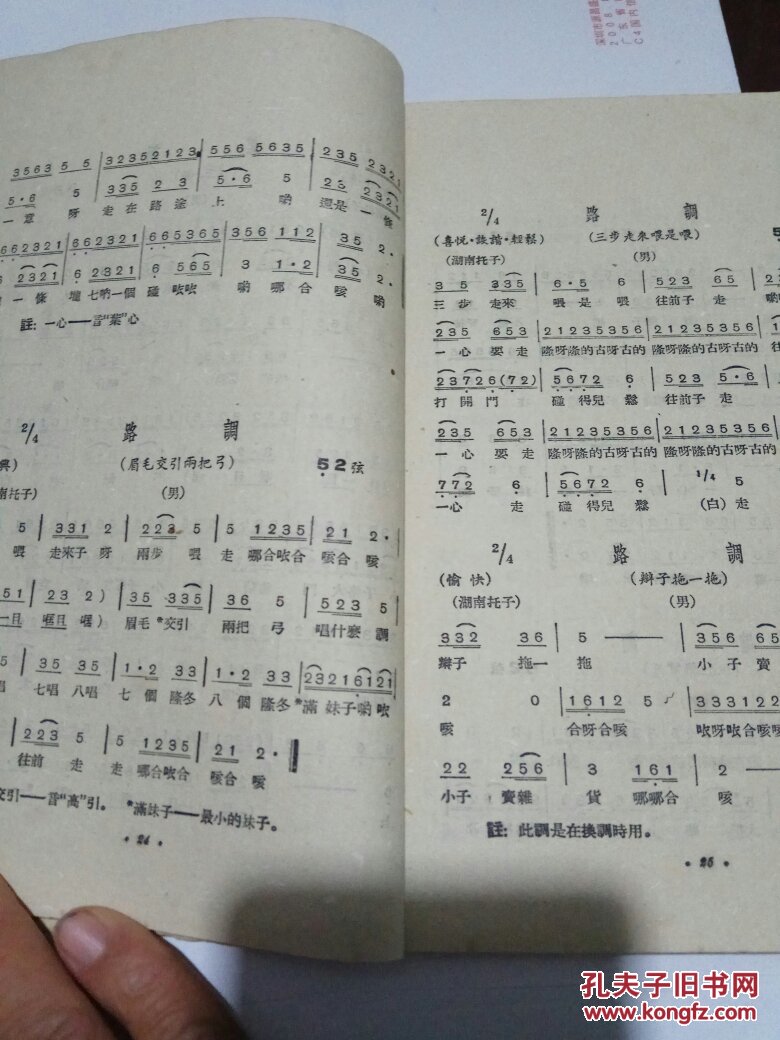 3563 5 5 | 32352123 | 556 5635 | 235 2321
5·6 5 | 335 2 3 | 5·6 5 | 23 2321
一意 呀 走在 路途 上 喲 還是 一條
662321 662321 | 665365 | 356 112 | 35 2·
6 2321 | 6 565 | 3 1·2 | 35 2·
一條 壠 七喲一個 碰 吹吹 喲 哪合 咳 喲
註：一心——音“葉”心
2/4 路 調
(眉毛交引兩把弓) 52弦
南托子) (男)
5 | 331 2 | 223 5 | 5 1235 | 21 2·
喂 走來子 呀 兩步 喂 走 哪合吹合 咳合 咳
51 | 23 2) | 35 335 | 36 5 | 523 5
一且 哐且 哐) 眉毛 *交引 兩把 弓 唱什麽 調
35 35 | 1·2 33 | 1·2 33 | 23216121
唱 七唱 八唱 七 個 隆冬 八 個 隆冬 *滿 妹子喲 吹
223 5 | 5 1235 | 21 2·
往前 走 走 哪合吹合 咳合 咳
交引——音“高”引。 *滿妹子——最小的妹子。
·24·
2/4 路 調
(喜悦·詼諧·輕鬆) (三步走來喂是喂) 5
(湖南托子) (男)
3 5 335 | 6·5 6 | 523 65
三 步 走來 喂 是 喂 往前子 走 喲
235 653 | 21235356 | 21235356
一心 要走 隆呀隆的古呀古的 隆呀隆的古呀古的 往
23726(72) | 5672 6 | 523 5·6
打開門 碰 得兒 鬆 往前子 走
235 653 | 21235356 | 21235356
一心 要走 隆呀隆的古呀古的 隆呀隆的古呀古的
772 6 | 5672 6 | 1/4 5
一心 走 碰 得兒 鬆 (白) 走
2/4 路 調
(愉快) (辮子拖一拖)
(湖南托子) (男)
332 36 | 5 —— | 356 65
辮子 拖一 拖 小子 賣
2 0 | 1612 5 | 333122
咳 合呀合咳 吹呀吹合咳咳
22 256 | 3 161 | 2 —
小子 賣雜 貨 哪哪合 咳
註：此調是在換調時用。
·25·
孔夫子旧书网
www.kongfz.com